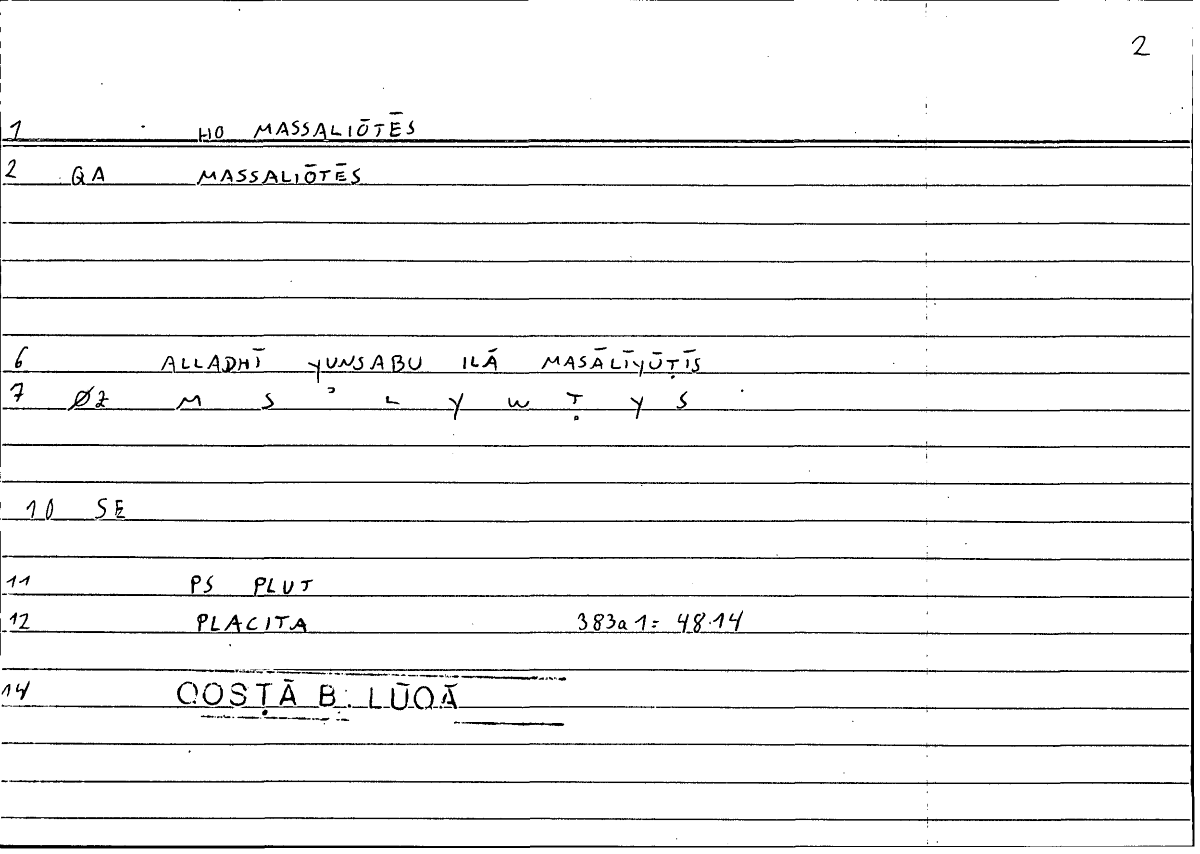 2
1 HO MASSALIŌTĒS
2 QA MASSALIŌTĒS
6 ALLADHĪ YUNSABU ILĀ MASĀLĪYŪṬĪS
7 ØZ M S ʾ L Y W Ṭ Y S
10 SE
11 PS PLUT
12 PLACITA 383a1= 48.14
14 QOSṬĀ B. LŪQĀ